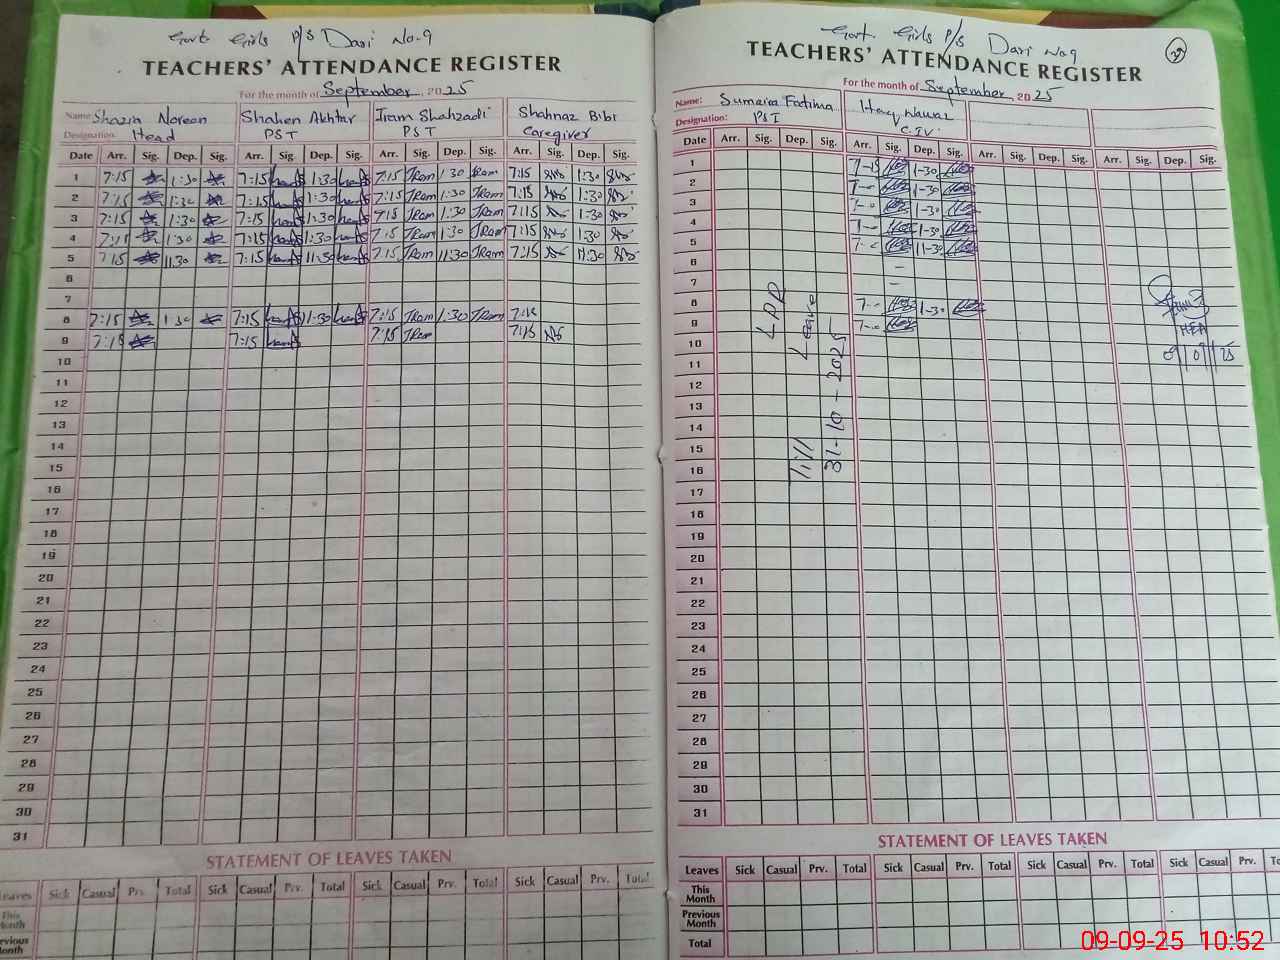 Govt Girls P/S Dari No.9
TEACHERS' ATTENDANCE REGISTER
For the month of September 2025
Name: Shazia Noreen Shahen Akhtar Iram Shahzadi Shahnaz Bibi
Designation: Head PST PST Caregiver
Date Arr. Sig. Dep. Sig. Arr. Sig. Dep. Sig. Arr. Sig. Dep. Sig. Arr. Sig. Dep. Sig.
1 7:15 1:30 7:15 1:30 7:15 Iram 1:30 Iram 7:15 1:30
2 7:15 1:30 7:15 1:30 7:15 Iram 1:30 Iram 7:15 1:30
3 7:15 1:30 7:15 1:30 7:15 Iram 1:30 Iram 7:15 1:30
4 7:15 1:30 7:15 1:30 7:15 Iram 1:30 Iram 7:15 1:30
5 7:15 11:30 7:15 11:30 7:15 Iram 11:30 Iram 7:15 11:30
6
7
8 7:15 1:30 7:15 1:30 7:15 Iram 1:30 Iram 7:15
9 7:15 7:15 7:15 Iram 7:15
10
11
12
13
14
15
16
17
18
19
20
21
22
23
24
25
26
27
28
29
30
31
STATEMENT OF LEAVES TAKEN
Leaves Sick Casual Prv. Total Sick Casual Prv. Total Sick Casual Prv. Total Sick Casual Prv. Total
This Month
Previous Month
Govt. Girls P/S Dari No9
TEACHERS' ATTENDANCE REGISTER
For the month of September 2025
Name: Sumaira Fatima Nawaz
Designation: PST
Date Arr. Sig. Dep. Sig. Arr. Sig. Dep. Sig. Arr. Sig. Dep. Sig. Arr. Sig. Dep. Sig.
1 7-15 1-30
2 7-- 1-30
3 7-0 1-30
4 7-- 1-30
5 7-0 11-30
6 -
7 -
8 7-- 1-30
9 7-0
10
11
12
13
14
15
16
17
18
19
20
21
22
23
24
25
26
27
28
29
30
31
Leave
till
31-10-2025
STATEMENT OF LEAVES TAKEN
Leaves Sick Casual Prv. Total Sick Casual Prv. Total Sick Casual Prv. Total Sick Casual Prv.
This Month
Previous Month
Total
09-09-25 10:52